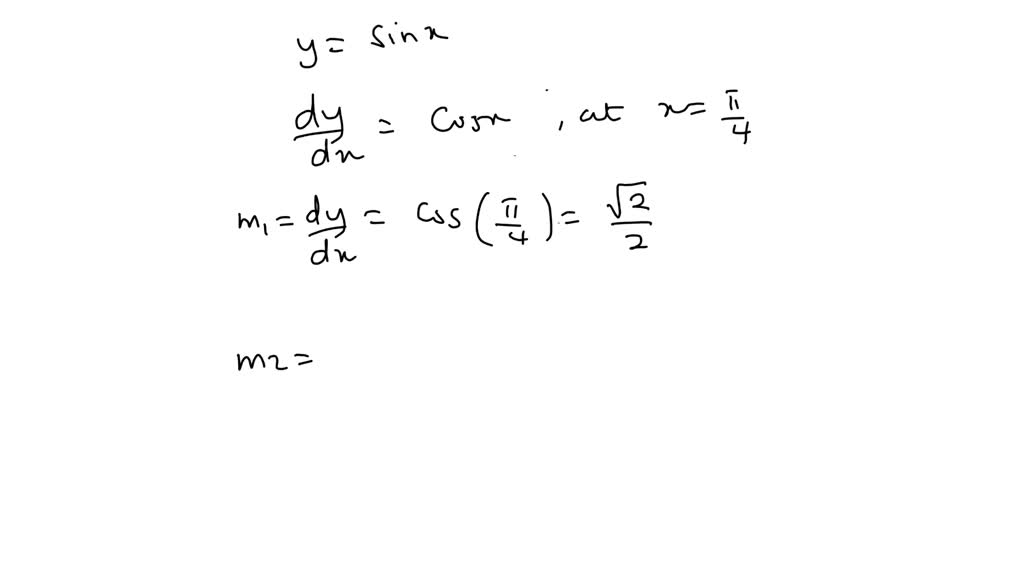 y = sinx
dy/dx = cosx , at x = π/4
m₁ = dy/dx = cos(π/4) = √2/2
m2 =